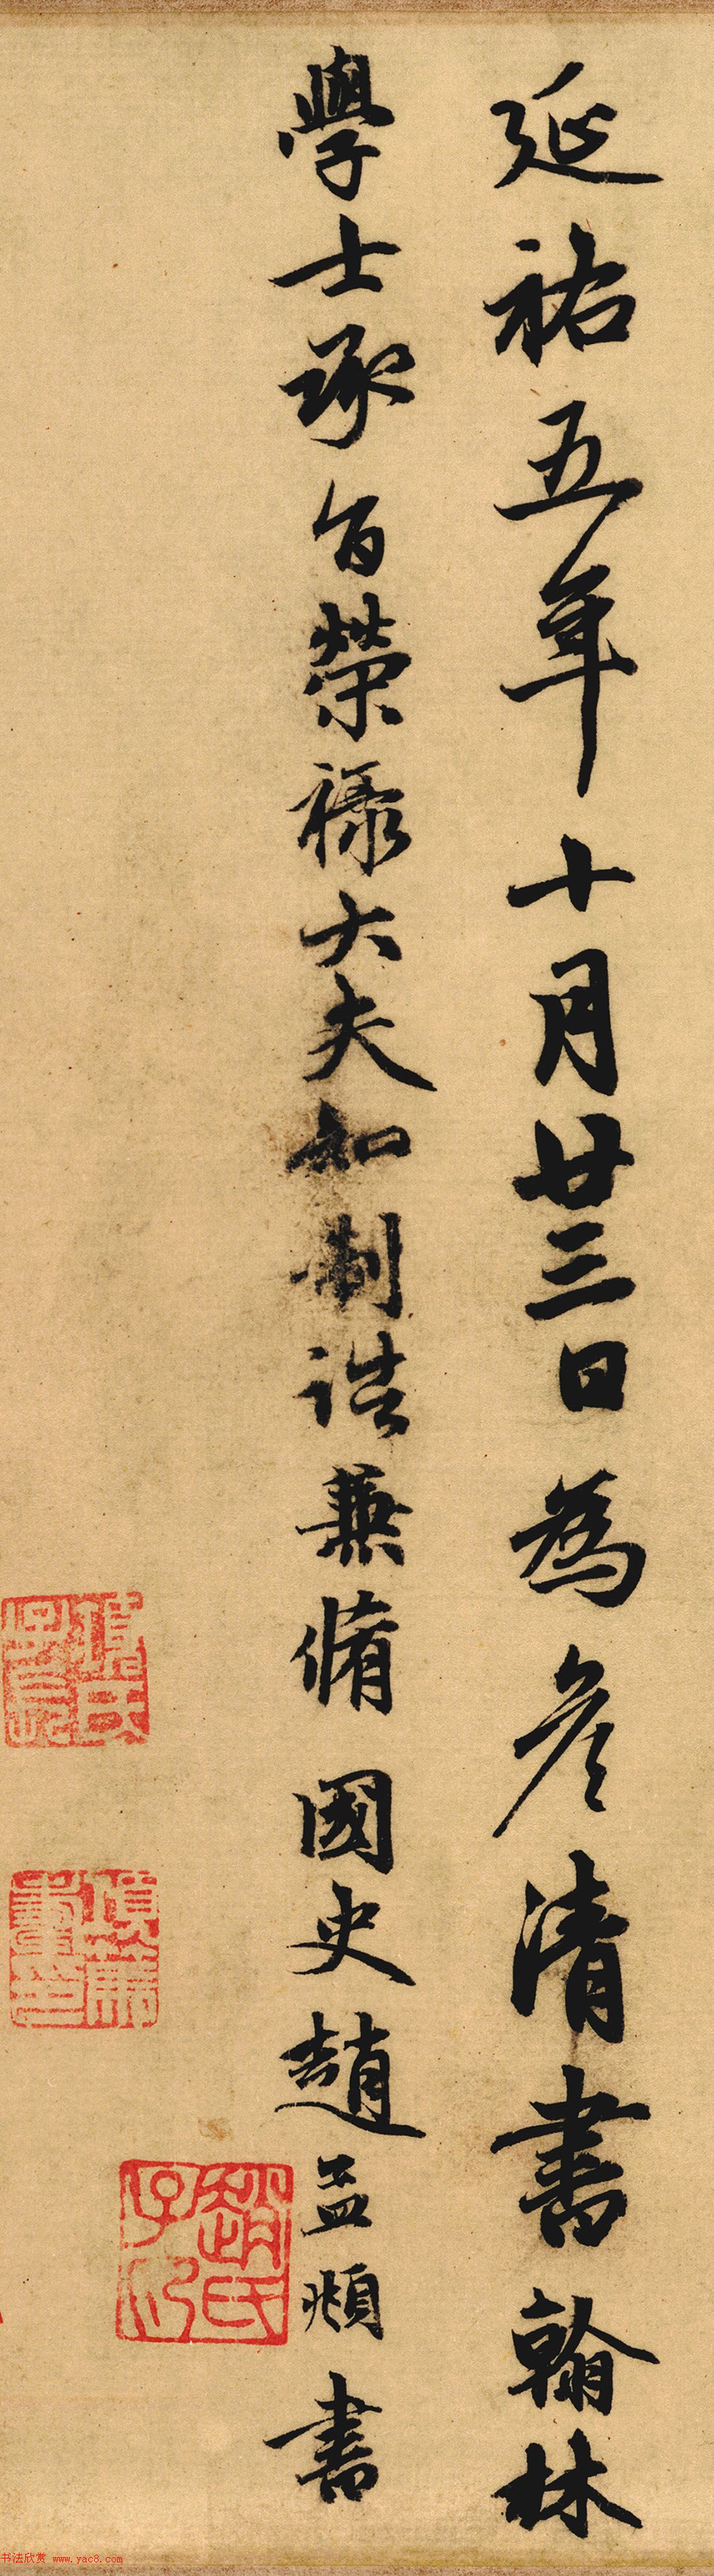 延祐五年十月廿三日為彦清書翰林
學士承旨榮祿大夫知制誥兼脩國史趙孟頫書
趙氏子印
书法欣赏 www.yac8.com